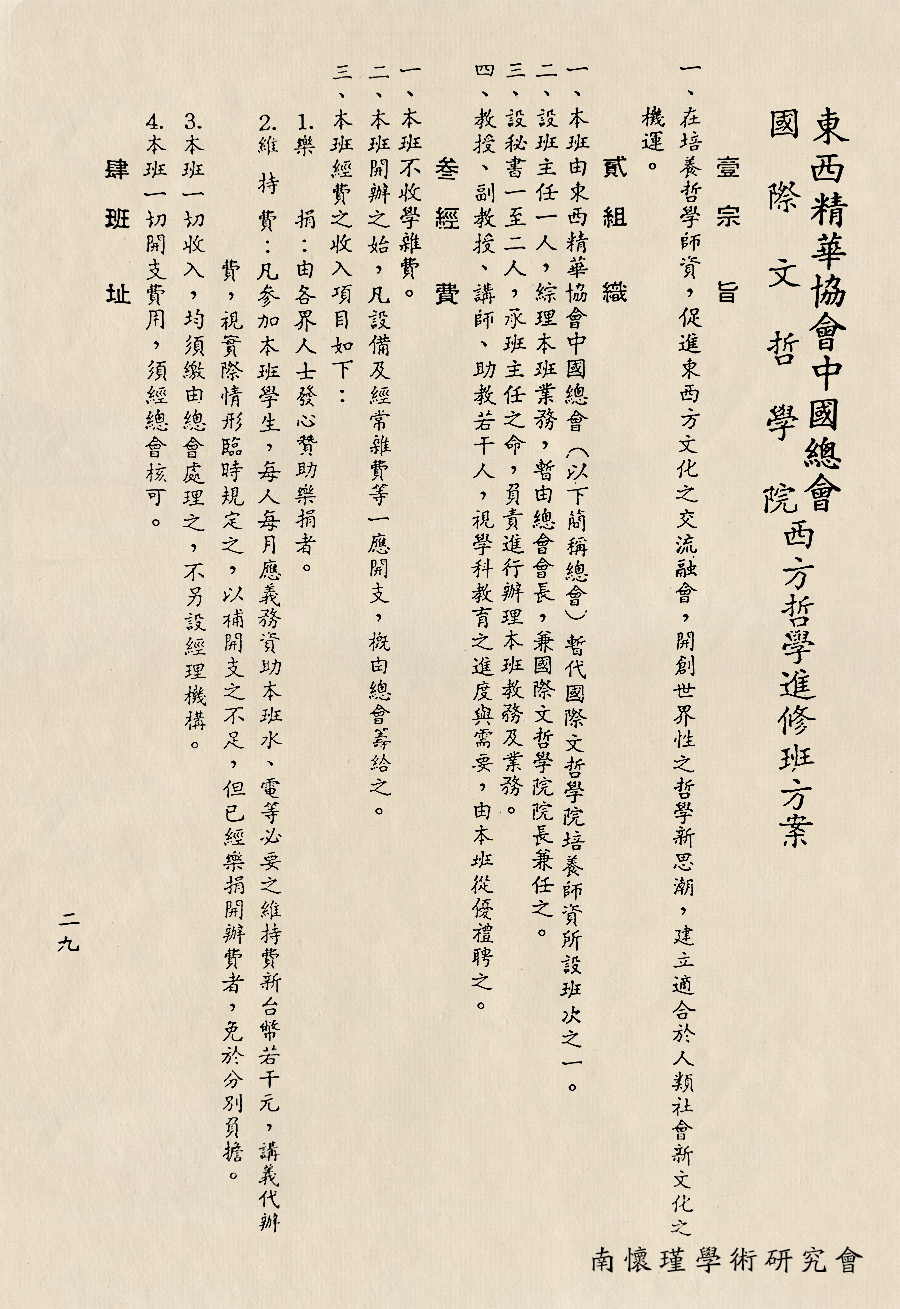 東西精華協會中國總會
國際文哲學院西方哲學進修班方案
壹 宗 旨
一、在培養哲學師資，促進東西方文化之交流融會，開創世界性之哲學新思潮，建立適合於人類社會新文化之
機運。
貳 組 織
一、本班由東西精華協會中國總會（以下簡稱總會）暫代國際文哲學院培養師資所設班次之一。
二、設班主任一人，綜理本班業務，暫由總會會長，兼國際文哲學院院長兼任之。
三、設秘書一至二人，承班主任之命，負責進行辦理本班教務及業務。
四、教授、副教授、講師、助教若干人，視學科教育之進度與需要，由本班從優禮聘之。
叁 經 費
一、本班不收學雜費。
二、本班開辦之始，凡設備及經常雜費等一應開支，概由總會籌給之。
三、本班經費之收入項目如下：
1.樂 捐：由各界人士發心贊助樂捐者。
2.維 持 費：凡參加本班學生，每人每月應義務資助本班水、電等必要之維持費新台幣若干元，講義代辦
費，視實際情形臨時規定之，以補開支之不足，但已經樂捐開辦費者，免於分別負擔。
3.本班一切收入，均須繳由總會處理之，不另設經理機構。
4.本班一切開支費用，須經總會核可。
肆 班 址
二九
南懷瑾學術研究會